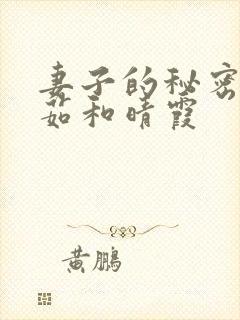 妻子的秘密
茹和晴霞
黄鹏